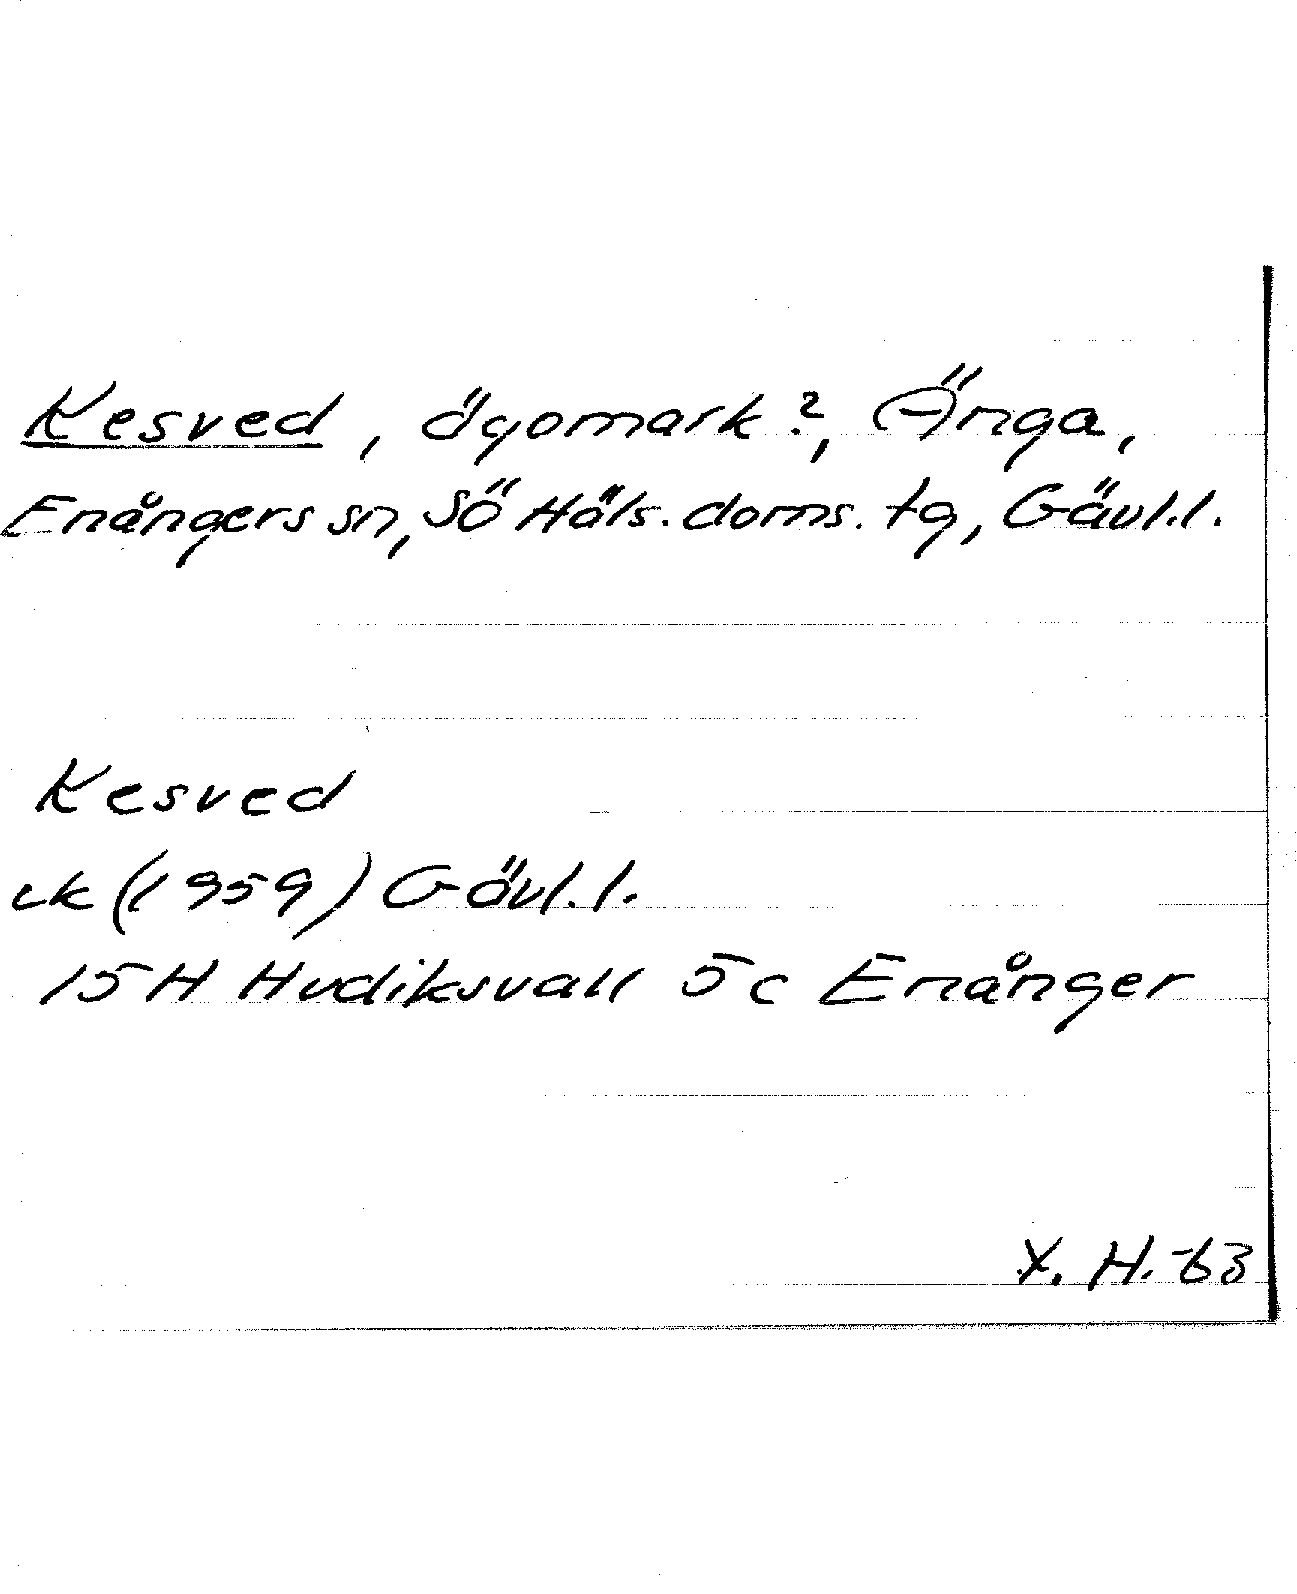 Kesved, ägomark?, Änga,
Enångers sn, SÖ Häls. doms. tg, Gävl.l.
Kesved
ek (1959) Gävl.l.
15H Hudiksvall 5c Enånger
X. H. -63